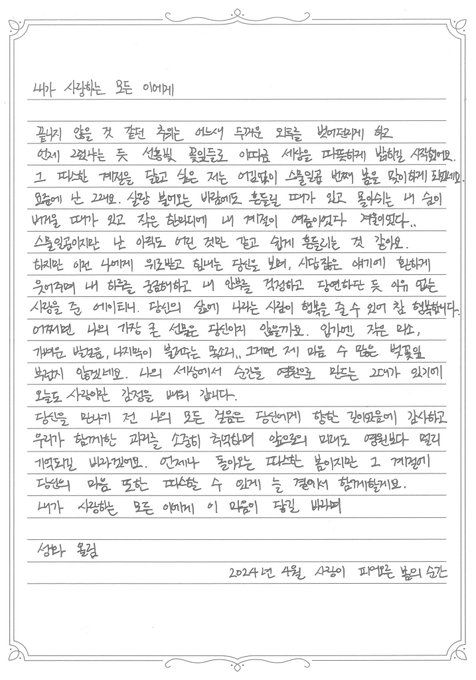 내가 사랑하는 모든 이에게
끝나지 않을 것 같던 추위는 어느새 두꺼운 외투를 벗어던지게 하고
언제 그랬냐는 듯 선홍빛 꽃잎들로 이따금 세상을 따뜻하게 밝히길 시작했어요.
그 따스한 계절을 닮고 싶은 저는 어김없이 스물일곱 번째 봄을 맞이하게 되었네요.
요즘에 난 그래요. 살랑 불어오는 바람에도 흔들릴 때가 있고 몰아쉬는 내 숨이
버거울 때가 있고 작은 한마디에 내 계절이 여름이었다 겨울이었다..
스물일곱이지만 난 아직도 어린 것만 같고 쉽게 흔들리는 것 같아요.
하지만 이런 나에게 위로받고 힘내는 당신을 보며, 시답잖은 얘기에 환하게
웃어주며 내 하루를 궁금해하고 내 안부를 걱정하고 당연하단 듯 이유 없는
사랑을 준 에이티니. 당신의 삶에 나라는 사람이 행복을 줄 수 있어 참 행복합니다.
어쩌면 나의 가장 큰 선물은 당신이지 않을까요. 입가에 작은 미소,
가벼운 발걸음, 나지막이 불러주는 목소리.. 그거면 제 마음 수 많은 벚꽃잎
부럽지 않겠네요. 나의 세상에서 순간을 영원으로 만드는 그대가 있기에
오늘도 사랑이란 감정을 배워 갑니다.
당신을 만나기 전 나의 모든 걸음은 당신에게 향한 길이었음에 감사하고
우리가 함께한 과거를 소중히 추억하며 앞으로의 미래도 영원보다 멀리
기억되길 바라겠어요. 언제나 돌아오는 따스한 봄이지만 그 계절에
당신의 마음 또한 따스할 수 있게 늘 곁에서 함께할게요.
내가 사랑하는 모든 이에게 이 마음이 닿길 바라며
성화 올림
2024년 4월 사랑이 피어오른 봄의 순간